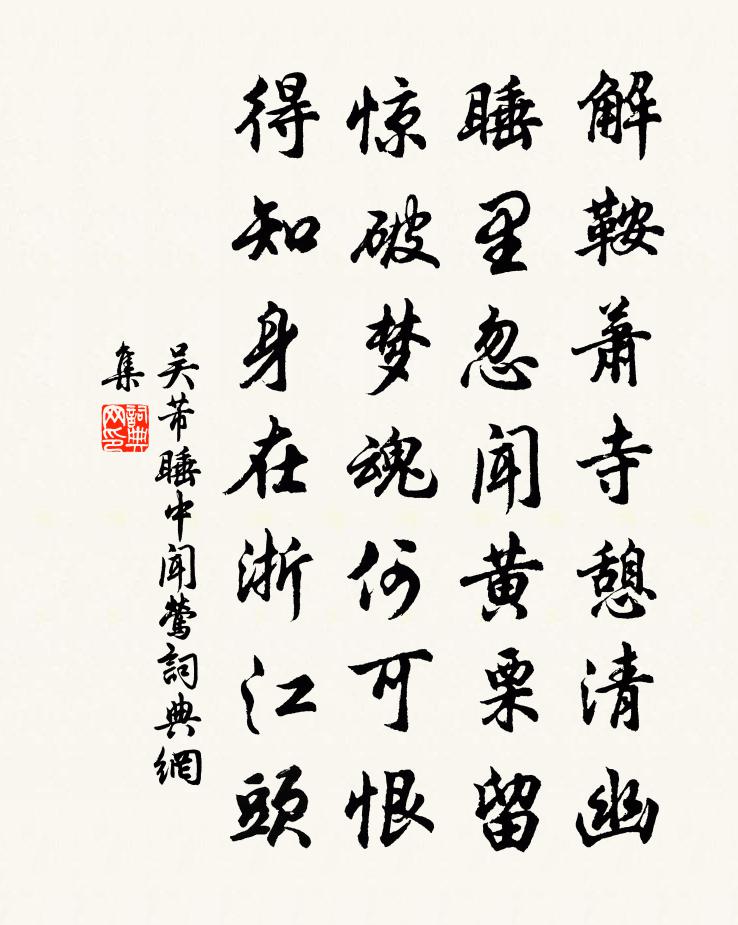 解鞍萧寺憩清幽
睡里忽闻黄栗留
惊破梦魂何可恨
得知身在浙江头
吴芾睡中闻莺詞典網
集
詞典
网印